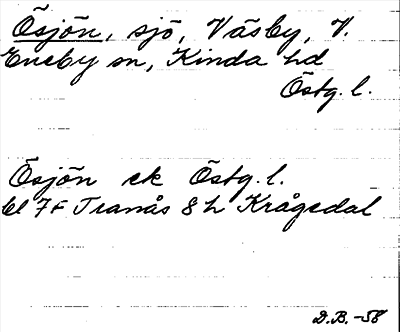 Ösjön, sjö, Väsby, V.
Eneby sn, Kinda hd
Östg. l.
Ösjön ek Östg. l.
bl 7 F Tranås 8 h Krågedal
D.B. -58